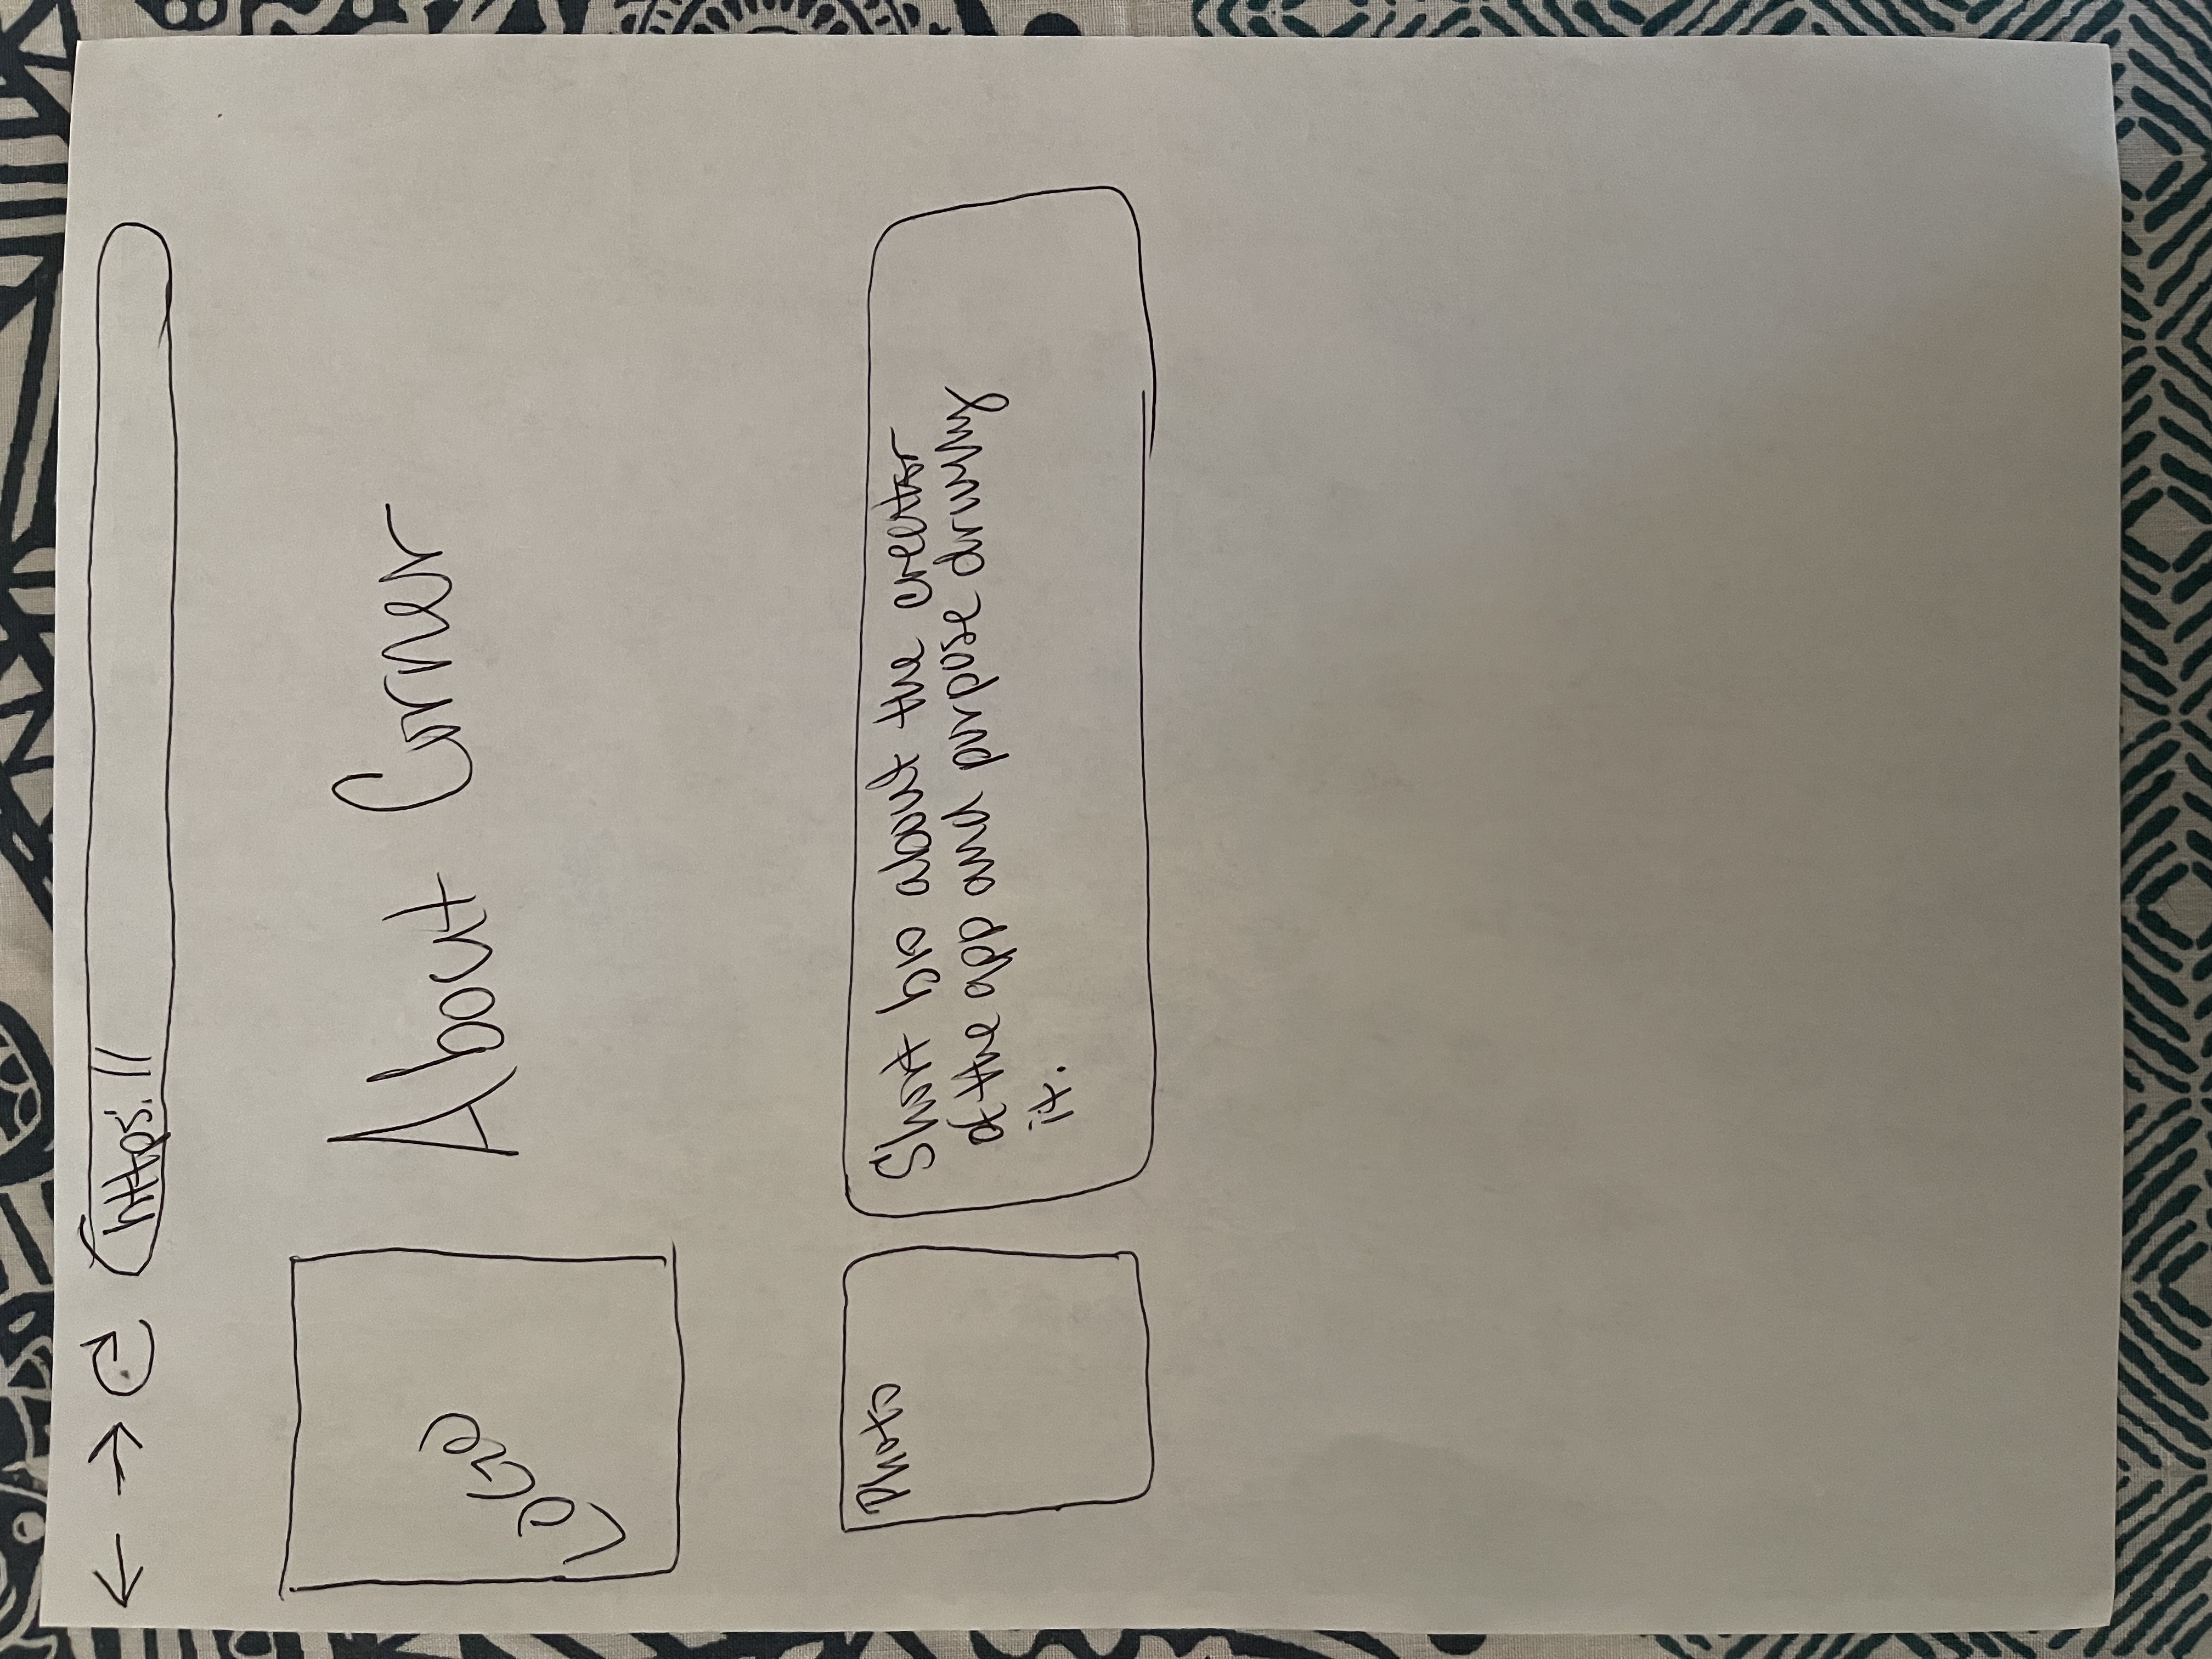 https://
LOGO
About Corner
Photo
Short bio about the creator
of the app and purpose driving
it.